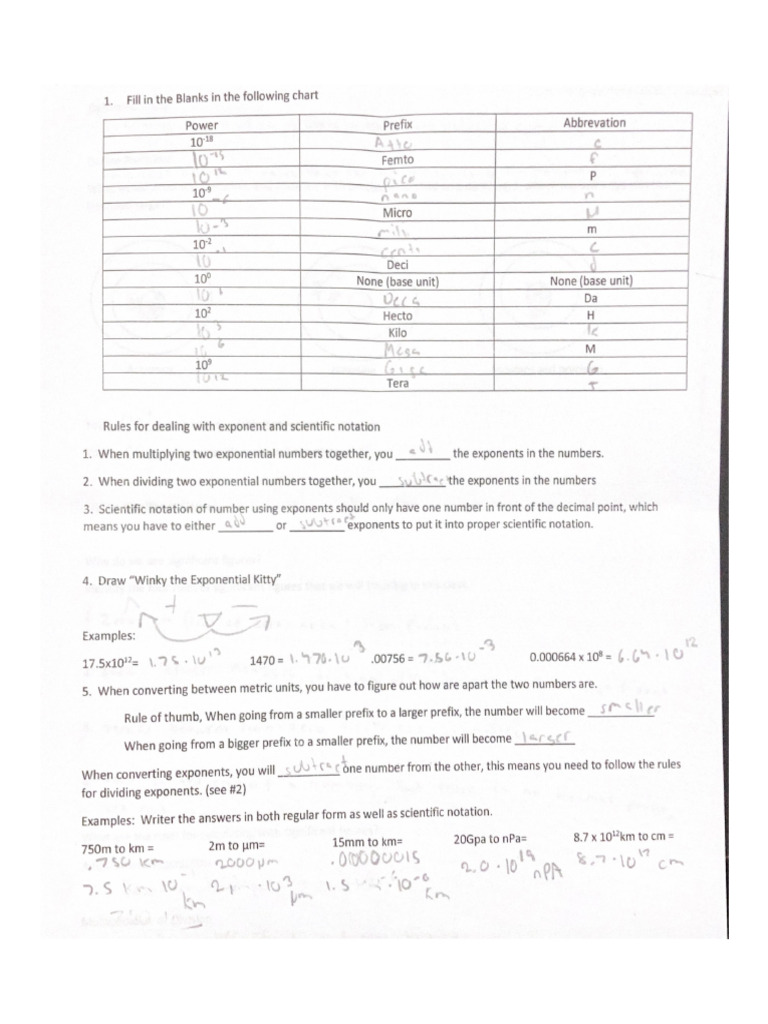 1. Fill in the Blanks in the following chart
Power Prefix Abbrevation
10-18 Atto c
10-15 Femto f
1012 pico P
10-9 nano n
10-6 Micro μ
10-3 mili m
10-2 centi c
10-1 Deci d
100 None (base unit) None (base unit)
101 Deca Da
102 Hecto H
103 Kilo k
106 Mega M
109 Giga G
1012 Tera T
Rules for dealing with exponent and scientific notation
1. When multiplying two exponential numbers together, you add the exponents in the numbers.
2. When dividing two exponential numbers together, you subtract the exponents in the numbers
3. Scientific notation of number using exponents should only have one number in front of the decimal point, which
means you have to either add or subtract exponents to put it into proper scientific notation.
4. Draw "Winky the Exponential Kitty"
+ −
Examples:
17.5x1012= 1.75 · 1013 1470 = 1.470·103 .00756 = 7.56·10-3 0.000664 x 108 = 6.64 · 1012
5. When converting between metric units, you have to figure out how are apart the two numbers are.
Rule of thumb, When going from a smaller prefix to a larger prefix, the number will become smaller
When going from a bigger prefix to a smaller prefix, the number will become larger
When converting exponents, you will subtract one number from the other, this means you need to follow the rules
for dividing exponents. (see #2)
Examples: Writer the answers in both regular form as well as scientific notation.
750m to km = 2m to μm= 15mm to km= 20Gpa to nPa= 8.7 x 1012km to cm =
.750 km 2000μm .00000015 2.0 · 1019 nPA 8.7·1017 cm
7.5 10 km 2 ·103 μm 1.5 ·10-6 km